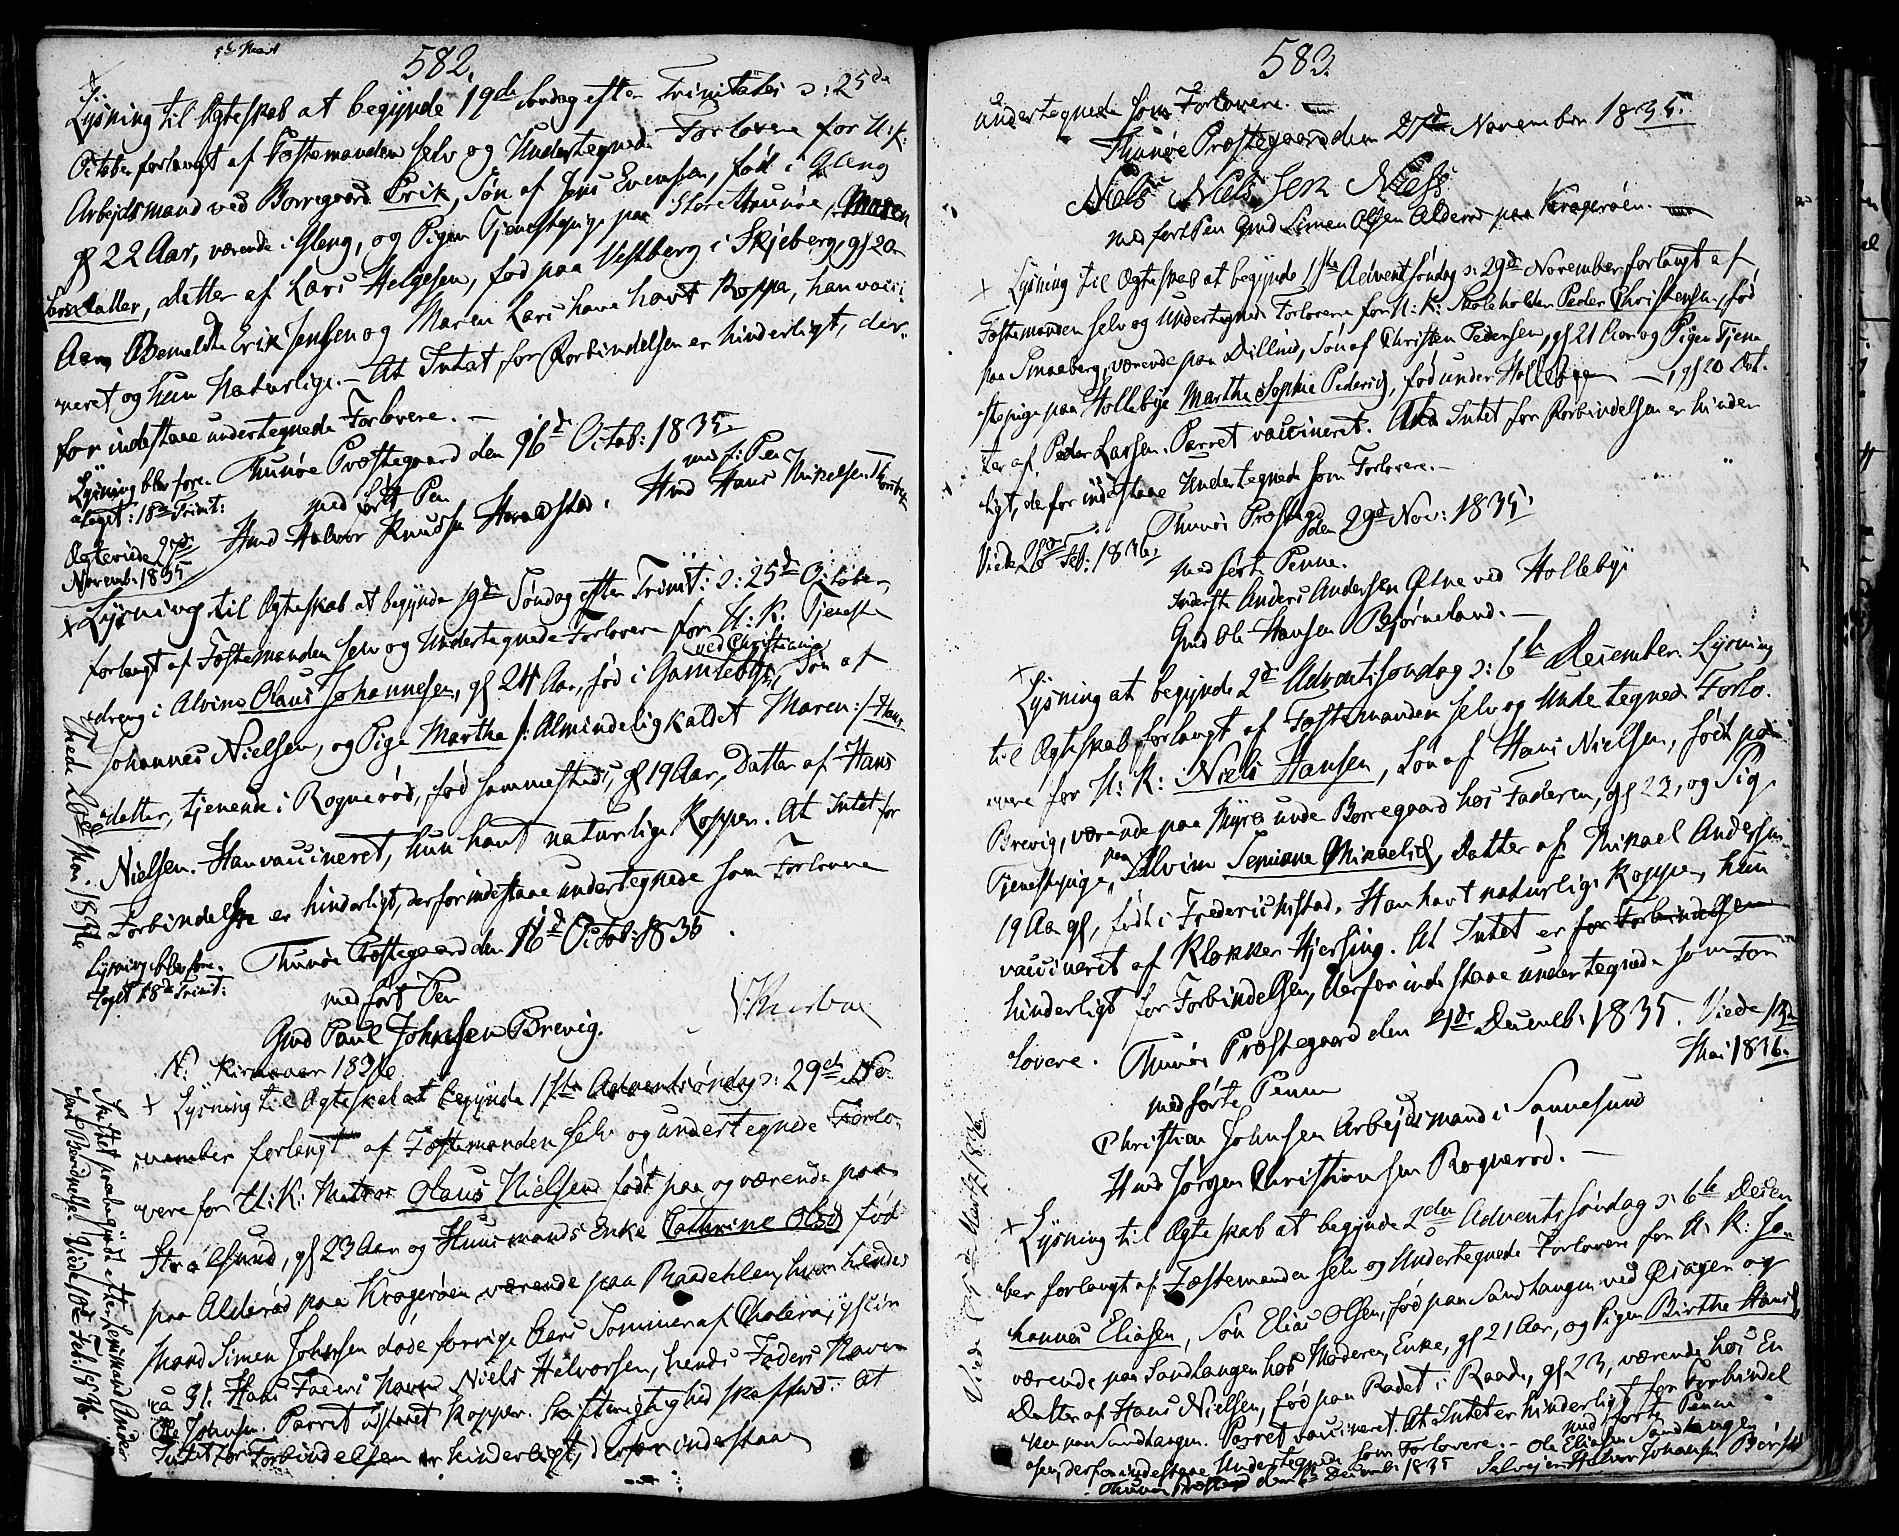 582.
Lysning til Ægteskab at begynde 19de Søndag efter Trinitatis ɔ: 25de
October forlangt af Fæstemanden selv og Undertegnede Forlovere for U: K:
Arbejdsmand ved Borregaard Erik, Søn af Jens Evensen, fød i Gleng
gl 22 Aar, værende i Gleng, og Pigen Tjenestepige paa Store Thunøe, Maren
Larsdatter, Datter af Lars Helgesen, fød paa Vestberg i Skjeberg, gl 20
Aar. Bemeldte Erik Jensen og Maren Lars have havt Kopper, han vacci-
neret og hun Naturlige. - At Intet for Forbindelsen er hinderligt, der-
for indestaae undertegnede Forlovere. -
Thunøe Præstegaard den 16de Octob: 1835.
Lysning blev fore-
taget: 18de Trinit:
med ført Pen
med f: Pen
Hmd Halvor Knudsen Haredstad. Hmd Hans Mikelsen
Ægteviede 27de
Novemb: 1835
+ Lysning til Ægteskab at begynde 19de Søndag efter Trinit: ɔ: 25de October,
forlangt af Fæstemanden selv og Undertegnede Forlovere for U: K: Tjeneste
ved Christiania
dreng i Alvim Olaus Johannesen, gl 24 Aar, fød i Gamlebyen, Søn af
Johannes Nielsen, og Pige Martha /: Almindelig kaldet Maren :/ Hans
datter, tjenende i Rognerød, fød sammesteds, gl 19 Aar, Datter af Hans
Nielsen. Han vaccineret, hun havt naturlige Kopper. At Intet for
Forbindelsen er hinderligt, derfor indestaae undertegnede som Forlovere
Thunøe Præstegaard den 16de Octob: 1835.
Lysning blev fore-
taget 18de Trinit:
med ført Pen
Gmd Paul Johnsen Brevig.
N: 1836
+ Lysning til Ægteskab at begynde 1ste Adventsøndag ɔ: 29de No-
vember forlangt af Fæstemanden selv og undertegnede Forlo-
vere for U: K: Matros Olaus Nielsen født paa og værende paa
Stralsund, gl 23 Aar og Huusmands Enke Cathrine Olsd fød
paa Alderød paa Kragerøen værende paa Raadehlen, hvor hendes
Mand Simen Johnsen døde forrige Aars Sommer af Cholera, gl
ca 31. Hans Faders Navn Niels Halvorsen, hendes Faders Navn
Ole Johnsen. Parret udstaaet Kopper. Skifterigtighed skaffes. At
Intet for Forbindelsen er hinderligt, derfor indestaae
583.
undertegnede som Forlovere.
Thunøe Præstegaard den 27de November 1835.
Niels Nielsen
med ført Pen Gmd Simen Olsen Alderød paa Kragerøen.
+ Lysning til Ægteskab at begynde 1ste Advent Søndag ɔ: 29de November forlangt af
Fæstemanden selv og Undertegnede Forlovere for U: K: Skoleholder Peder Christensen, fød
paa Smaaberg, værende paa Dillund, Søn af Christen Pedersen, gl 21 Aar og Pigen Tjene-
stepige paa Hollebye Marthe Sophie Pedersd, fød under Hollebye —, gl 20 Dat-
ter af Peder Larsen. Parret vaccineret. At Intet for Forbindelsen er hinder
ligt, derfor indestaae Undertegnede som Forlovere. -
Thunøe Præstegd den 29de Nov: 1835.
Viede 26de Feb: 1836.
med ført Penne.
Inderste Anders Andersen Ødne ved Hollebye
Gmd Ole Hansen Bjørneland. -
+ Lysning at begynde 2de Adventsøndag ɔ: 6te December Lysning
til Ægteskab forlangt af Fæstemanden selv og Undertegnede Forlo-
vere for U: K: Niels Hansen, Søn af Hans Nielsen, født paa
Brevig, værende paa Myra unde Borregaard hos Faderen, gl 23, og Pig
Tjenestepige paa Alvim Semiane Mikaelsd, Datter af Mikael Andersen
19 Aar gl, født i Fredericksstad. Han havt naturlige Kopper, hun
vaccineret af Klokker Hjersing. At Intet er for Forbindelsen
hinderligt for Forbindelsen, derfor indestaae undertegnede som For
lovere. Thunøe Præstegaard den 4de Decemb: 1835. Viede
Mai 1836.
med førte Penne
Christian Johnsen Arbejdsmand i Sannesund
Hmd Jørgen Christiansen Rognerød. -
+ Lysning til Ægteskab at begynde 2den Advents Søndag ɔ: 6te Decem
ber forlangt af Fæstemanden selv og Undertegnede Forlovere for U: K: Jo-
hannes Eliasen, Søn Elias Olsen, fød paa Sandtangen ved Graagen og
værende paa Sandtangen hos Moderen, Enke, gl 21 Aar, og Pigen Birthe Hansd
Datter af Hans Nielsen, fød paa Rødet i Raade, gl 23, værende hos En
ken paa Sandtangen. Parret vaccineret. At Intet er hinderligt for Forbindel
sen, derfor indestaae Undertegnede som Forlovere. - med førte Penne
Ole Eliasen Sandtangen
Thunøe Præstegd den Decemb: 1835 Selvejer Halvor Johansen